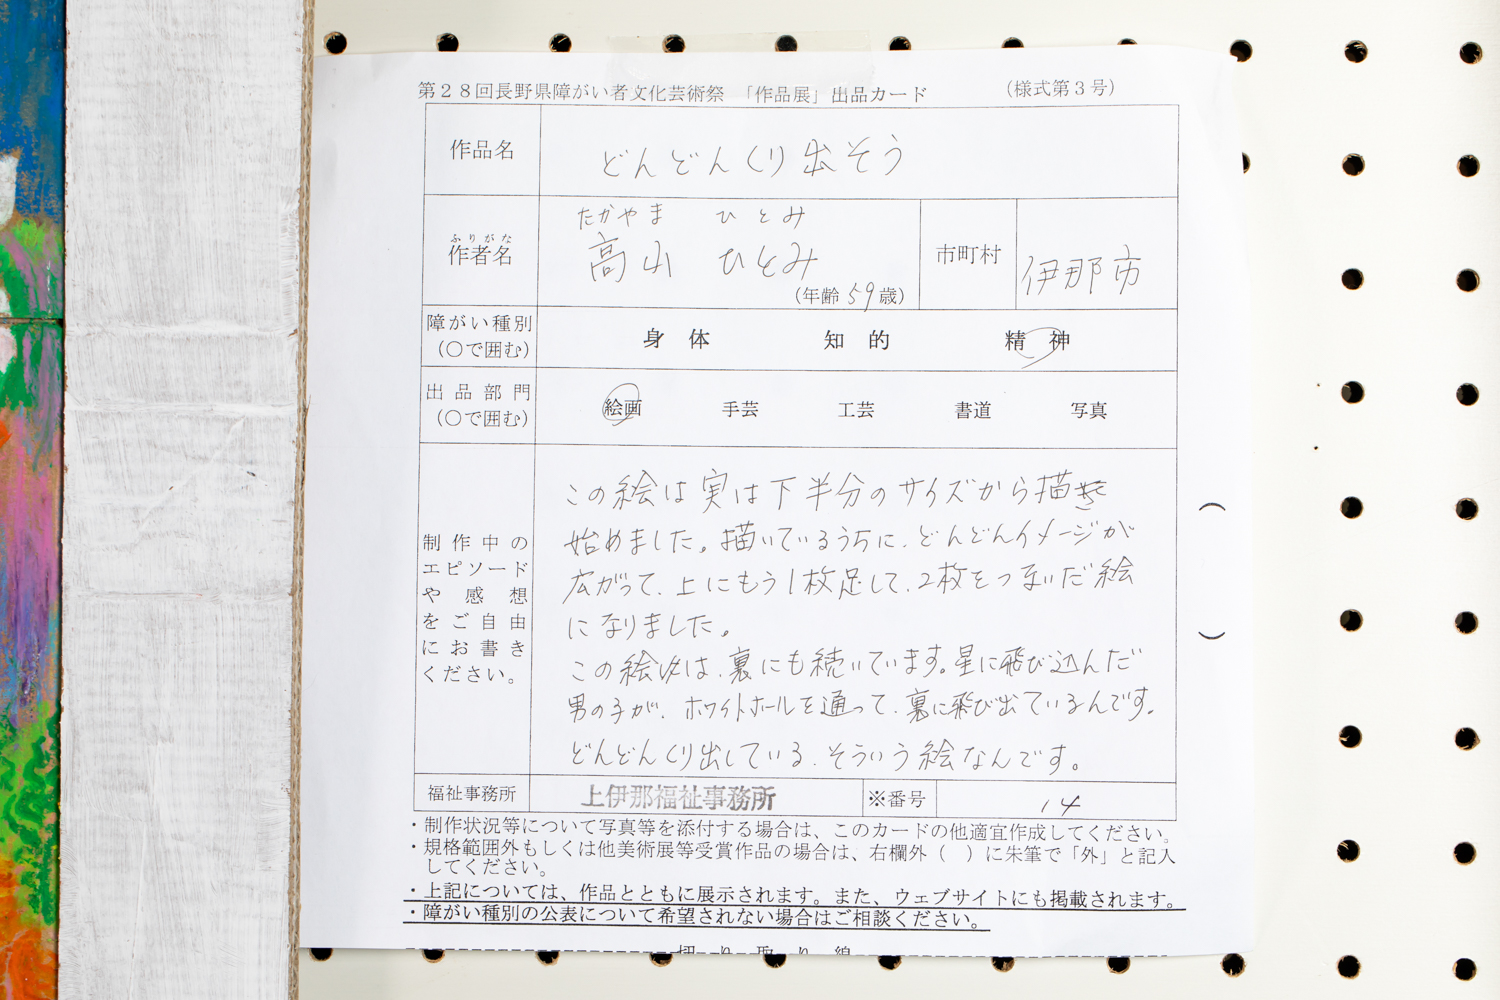 第28回長野県障がい者文化芸術祭 「作品展」出品カード (様式第3号)
作品名 どんどんくり出そう
たかやま ひとみ
ふりがな
作者名 高山 ひとみ 市町村 伊那市
(年齢 59歳)
障がい種別 身体 知的 精神
(〇で囲む)
出品部門 絵画 手芸 工芸 書道 写真
(〇で囲む)
制作中の
エピソード
や感想
をご自由
にお書き
ください。
この絵は実は下半分のサイズから描き
始めました。描いているうちに、どんどんイメージが
広がって、上にもう1枚足して、2枚をつないだ絵
になりました。
この絵は、裏にも続いています。星に飛び込んだ
男の子が、ホワイトホールを通って、裏に飛び出ているんです。
どんどんくり出している、そういう絵なんです。
( )
福祉事務所 上伊那福祉事務所 ※番号 14
・制作状況等について写真等を添付する場合は、このカードの他適宜作成してください。
・規格範囲外もしくは他美術展等受賞作品の場合は、右欄外( )に朱筆で「外」と記入
してください。
・上記については、作品とともに展示されます。また、ウェブサイトにも掲載されます。
・障がい種別の公表について希望されない場合はご相談ください。
切り取り線